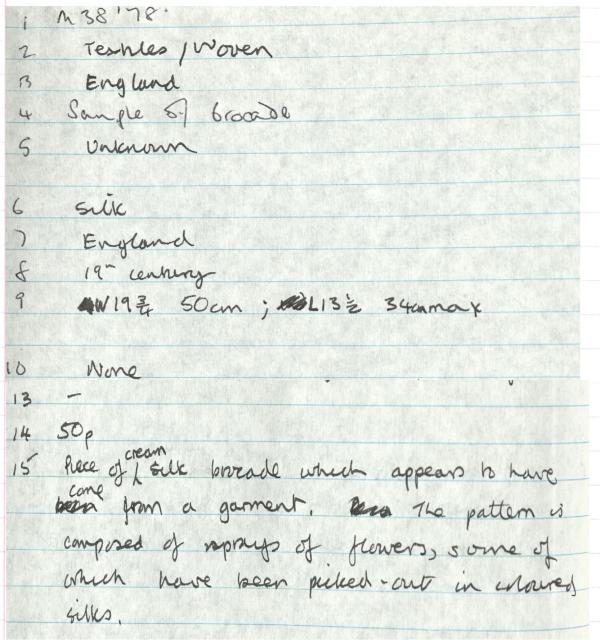 1 M 38 '78.
2 Textiles / Woven
3 England
4 Sample of brocade
5 Unknown
6 Silk
7 England
8 19th century
9 W 19 3/4 50cm ; L 13 1/2 34cm max
10 None
13 -
14 50p
15 Piece of cream silk brocade which appears to have
come from a garment. The pattern is
composed of sprays of flowers, some of
which have been picked-out in coloured
silks.